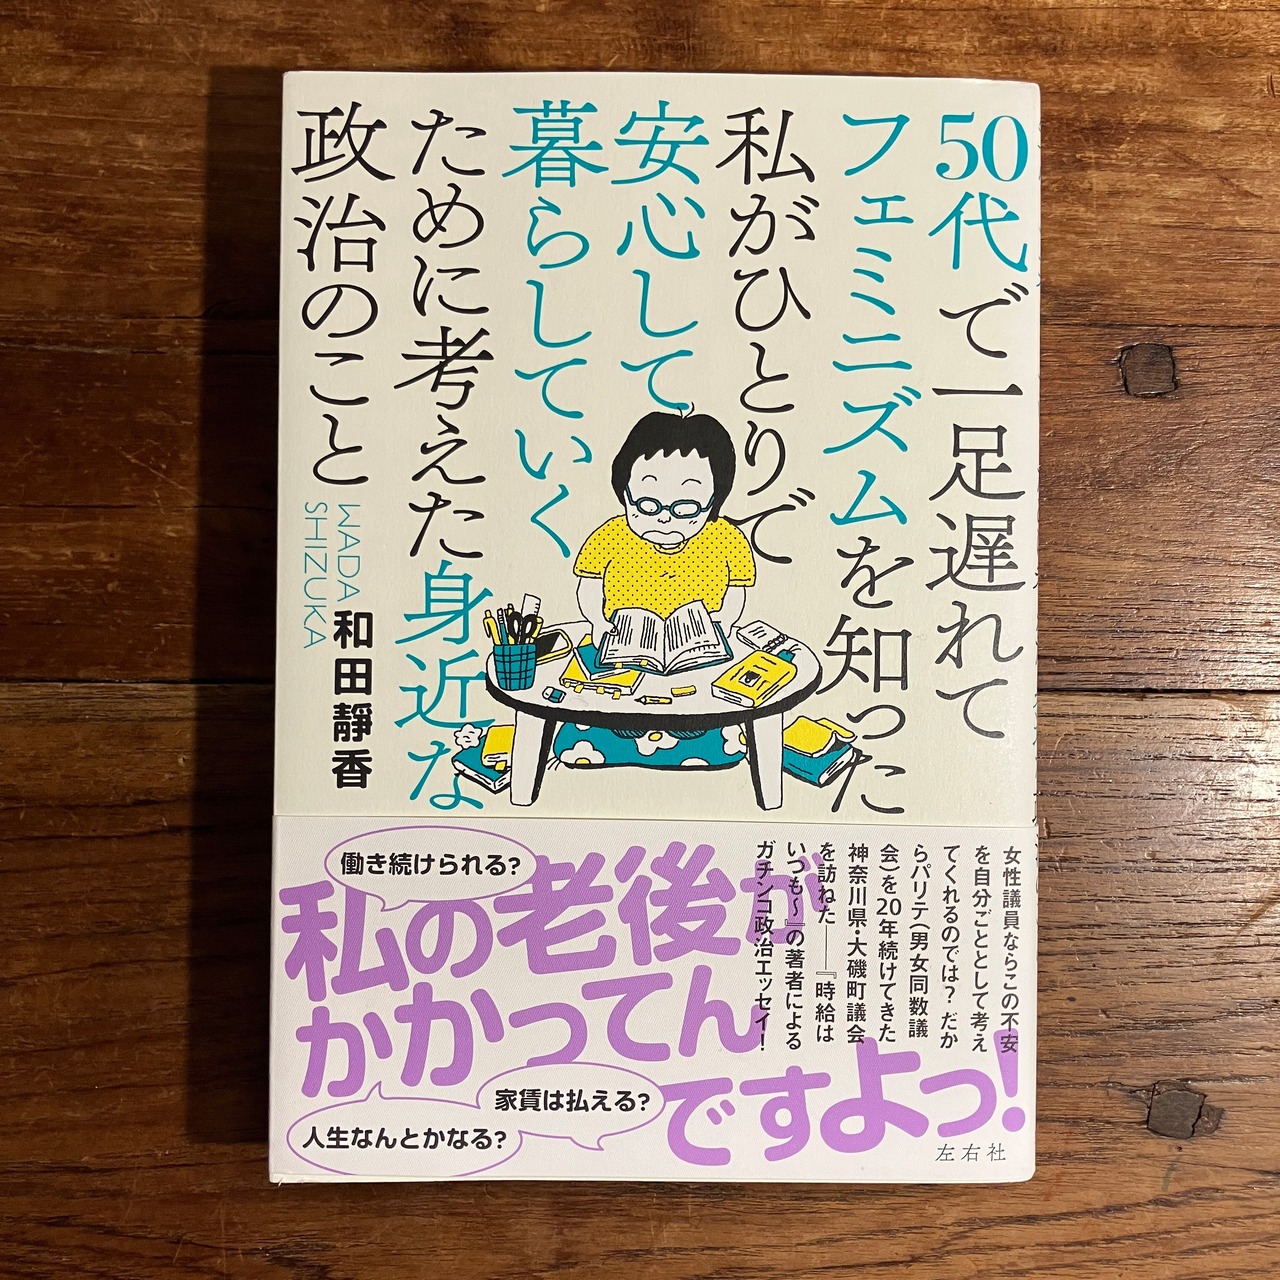 50代で一足遅れて
フェミニズムを知った
私がひとりで
安心して
暮らしていく
ために考えた身近な
政治のこと
WADA
SHIZUKA
和田靜香
働き続けられる?
私の老後が
かかってん
ですよっ!
家賃は払える?
人生なんとかなる?
女性議員ならこの不安
を自分ごととして考え
てくれるのでは? だか
らパリテ(男女同数議
会)を20年続けてきた
神奈川県・大磯町議会
を訪ねた――『時給は
いつも〜』の著者による
ガチンコ政治エッセイ!
左右社